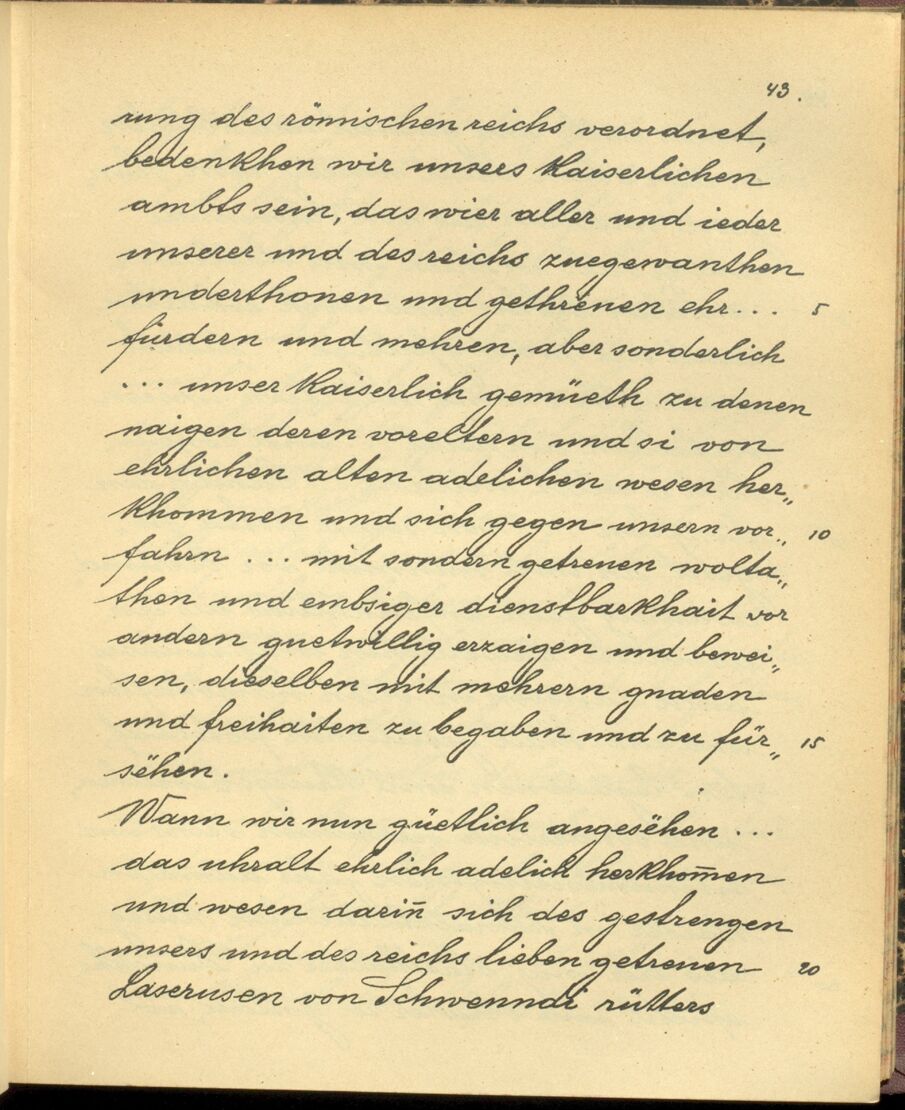 43.
rung des römischen reichs verordnet,
bedenkhen wir unsers kaiserlichen
ambts sein, das wier aller und ieder
unserer und des reichs zuegewanthen
underthonen und gethreuen ehr... 5
fürdern und mehren, aber sonderlich
... unser kaiserlich gemüeth zu denen
naigen deren voreltern und si von
ehrlichen alten adelichen wesen her„
khommen und sich gegen unsern vor„ 10
fahrn ... mit sondern getreuen wolta„
then und embsiger dienstbarkhait vor
andern guetwillig erzaigen und bewei„
sen, dieselben mit mehrern gnaden
und freihaiten zu begaben und zu für„ 15
sëhen.
Wann wir nun güetlich angesëhen ...
das uhralt ehrlich adelich herkhom̄en
und wesen darin̄ sich des gestrengen
unsers und des reichs lieben getreuen 20
Laserusen von Schwenndi rütters